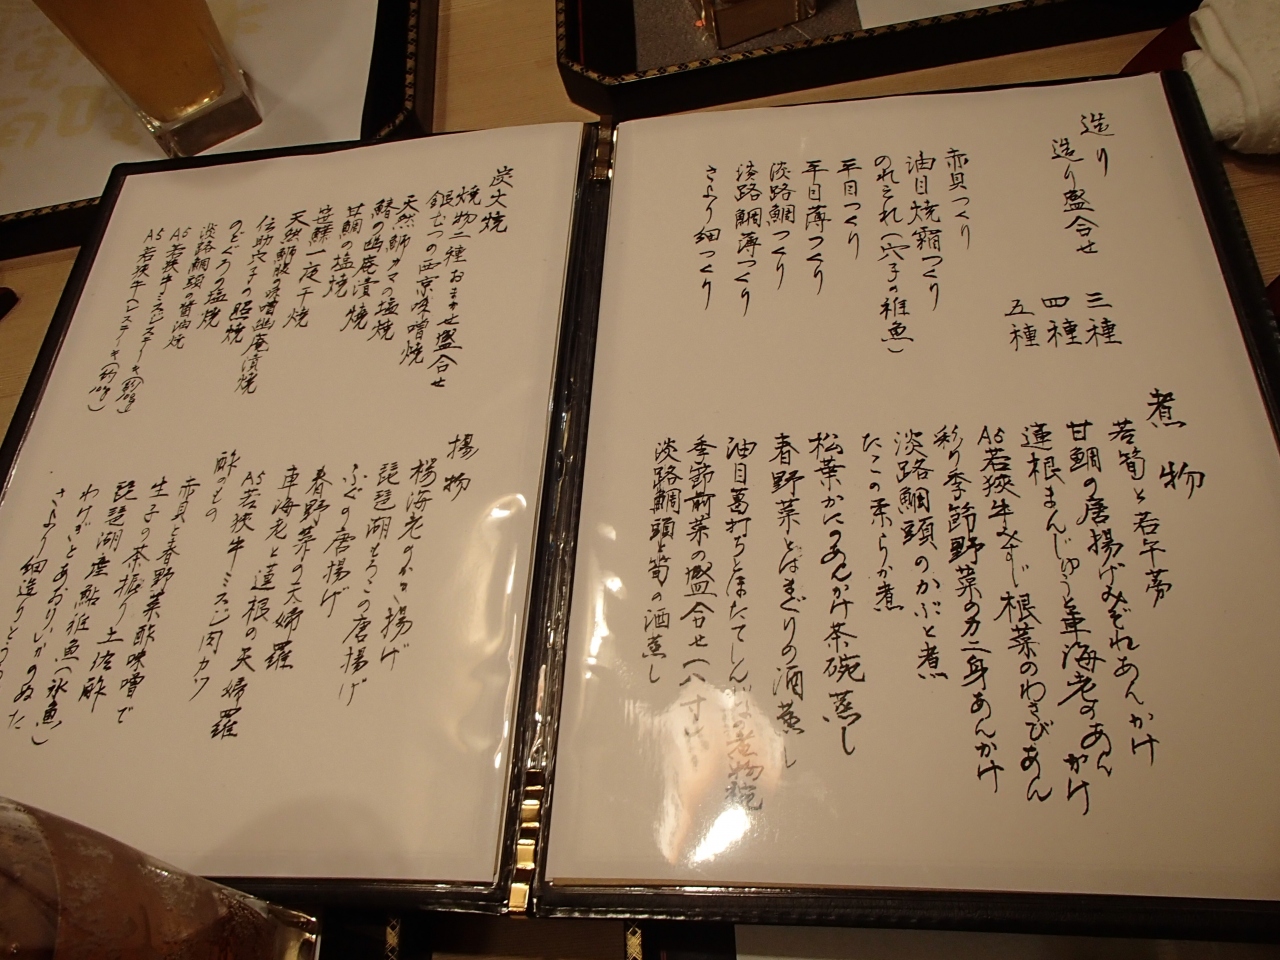 造り
造り盛合せ
三種
四種
五種
赤貝つくり
油目焼霜つくり
のれそれ(穴子の稚魚)
平目つくり
平目薄つくり
淡路鯛つくり
淡路鯛薄つくり
さより細つくり
煮物
若筍と若牛蒡
甘鯛の唐揚げみぞれあんかけ
蓮根まんじゅうと車海老のあんかけ
A5若狭牛みすじ根菜のわさびあん
彩り季節野菜のカニ身あんかけ
淡路鯛頭のかぶと煮
たこの柔らか煮
松葉かにのあんかけ茶碗蒸し
春野菜とはまぐりの酒蒸し
油目葛打ちとほたてしんじょの煮物椀
季節前菜の盛合せ(八寸
淡路鯛頭と筍の酒蒸し
炭火焼
焼物二種おまかせ盛合せ
銀むつの西京味噌焼
天然鰤カマの塩焼
鰆の幽庵漬焼
甘鯛の塩焼
笹鰈一夜干焼
天然鰤腹の味噌幽庵漬焼
伝助穴子の照焼
のどぐろの塩焼
淡路鯛頭の醤油焼
A5若狭牛ミスジステーキ(約70g)
A5若狭牛ヘレステーキ(約70g)
揚物
桜海老のかき揚げ
琵琶湖もろこの唐揚げ
ふぐの唐揚げ
春野菜の天婦羅
車海老と蓮根の天婦羅
A5若狭牛ミスジ肉カツ
酢のもの
赤貝と春野菜酢味噌で
生子の茶振り土佐酢
琵琶湖産鮎稚魚(氷魚)
わけぎとあおりいかのぬた
さより細造りとうの